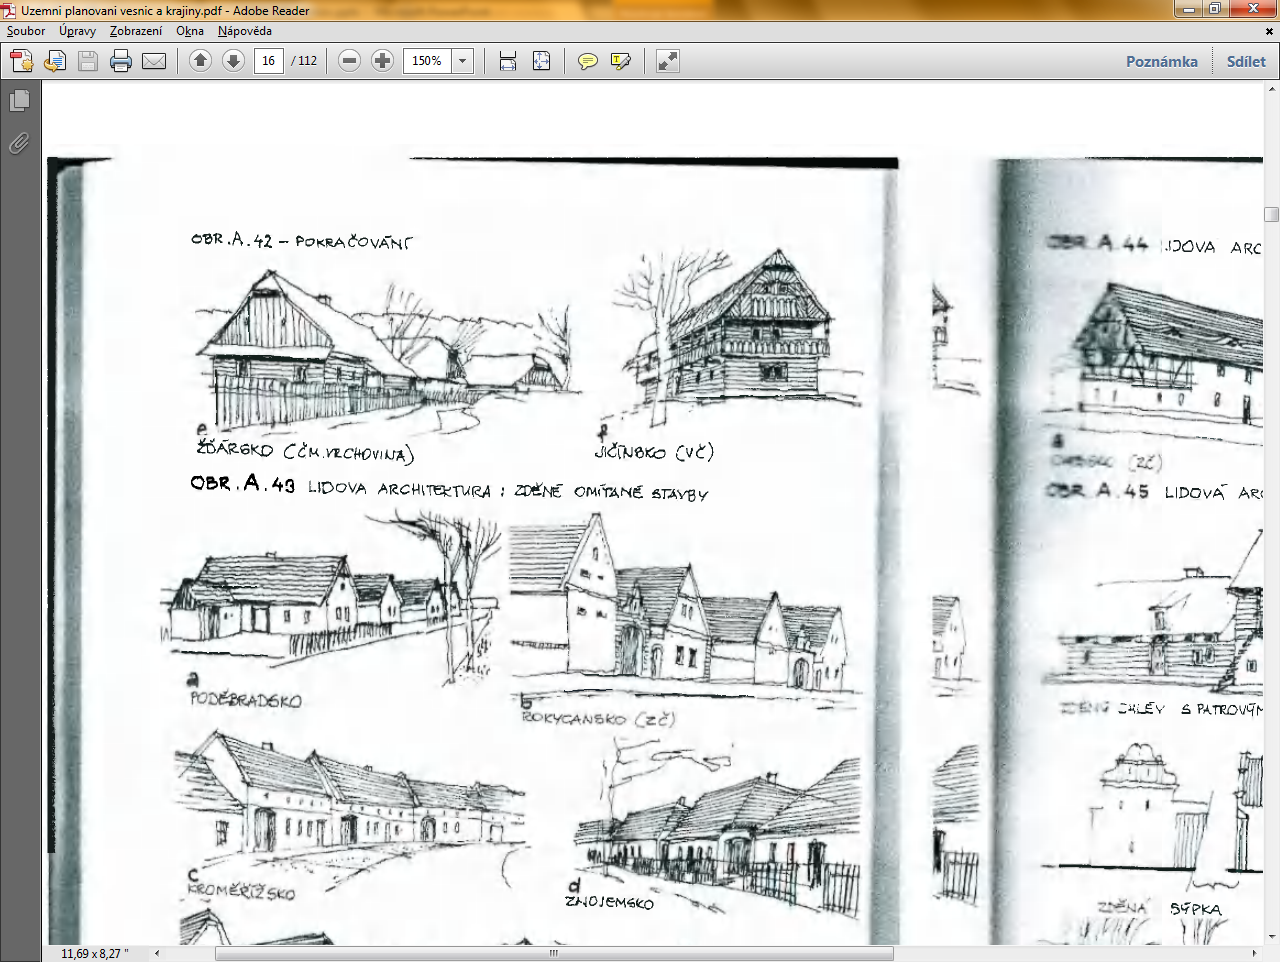 Uzemni planovani vesnic a krajiny.pdf - Adobe Reader
Soubor Úpravy Zobrazení Okna Nápověda
16 / 112 150% Poznámka Sdílet
OBR.A.42 – POKRAČOVÁNÍ
e
ŽĎÁRSKO (ČM.VRCHOVINA)
f
JIČÍNSKO (VČ)
OBR.A.43 LIDOVA ARCHITEKTURA : ZDĚNÉ OMÍTANÉ STAVBY
a
PODĚBRADSKO
b
ROKYCANSKO (ZČ)
c
KROMĚŘÍŽSKO
d
ZNOJEMSKO
OBR.A.44 LIDOVA ARC
a
(ZČ)
OBR.A.45 LIDOVÁ ARC
ZDĚNÝ CHLÉV S PATROVÝM
ZDĚNÁ SÝPKA
11,69 x 8,27 "